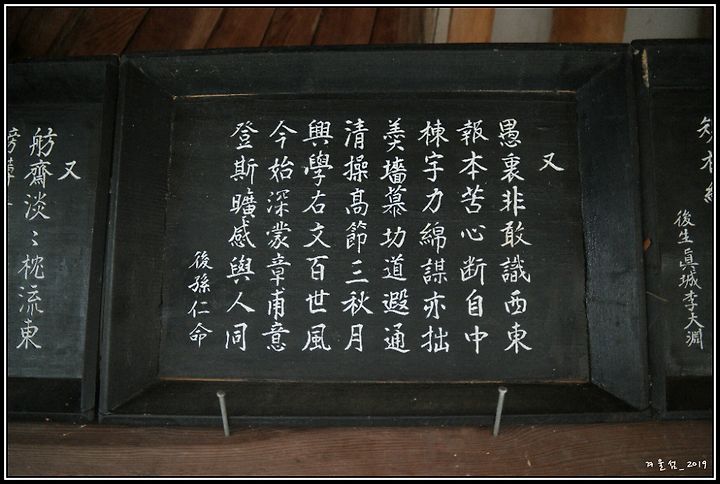 後生眞城李大淵
又
愚裏非敢識西東
報本苦心断自中
棟宇力綿謀亦拙
羹墻慕切道遐通
清操高節三秋月
興學右文百世風
今始深蒙章甫意
登斯曠感與人同
後孫仁命
又
舫齋淡〻枕流東
겨울섬_2019